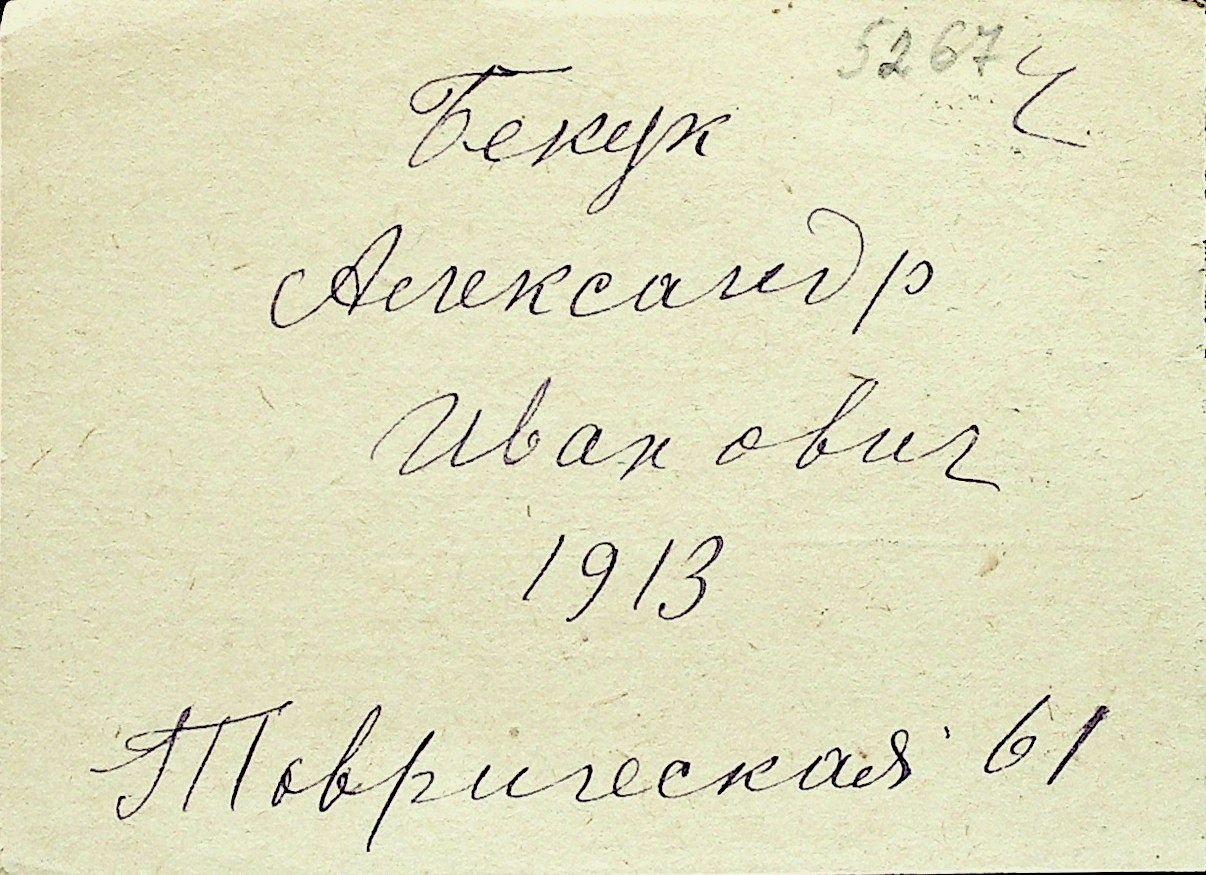 5267 ч
Бекук
Александр
Иванович
1913
Товрическая 61